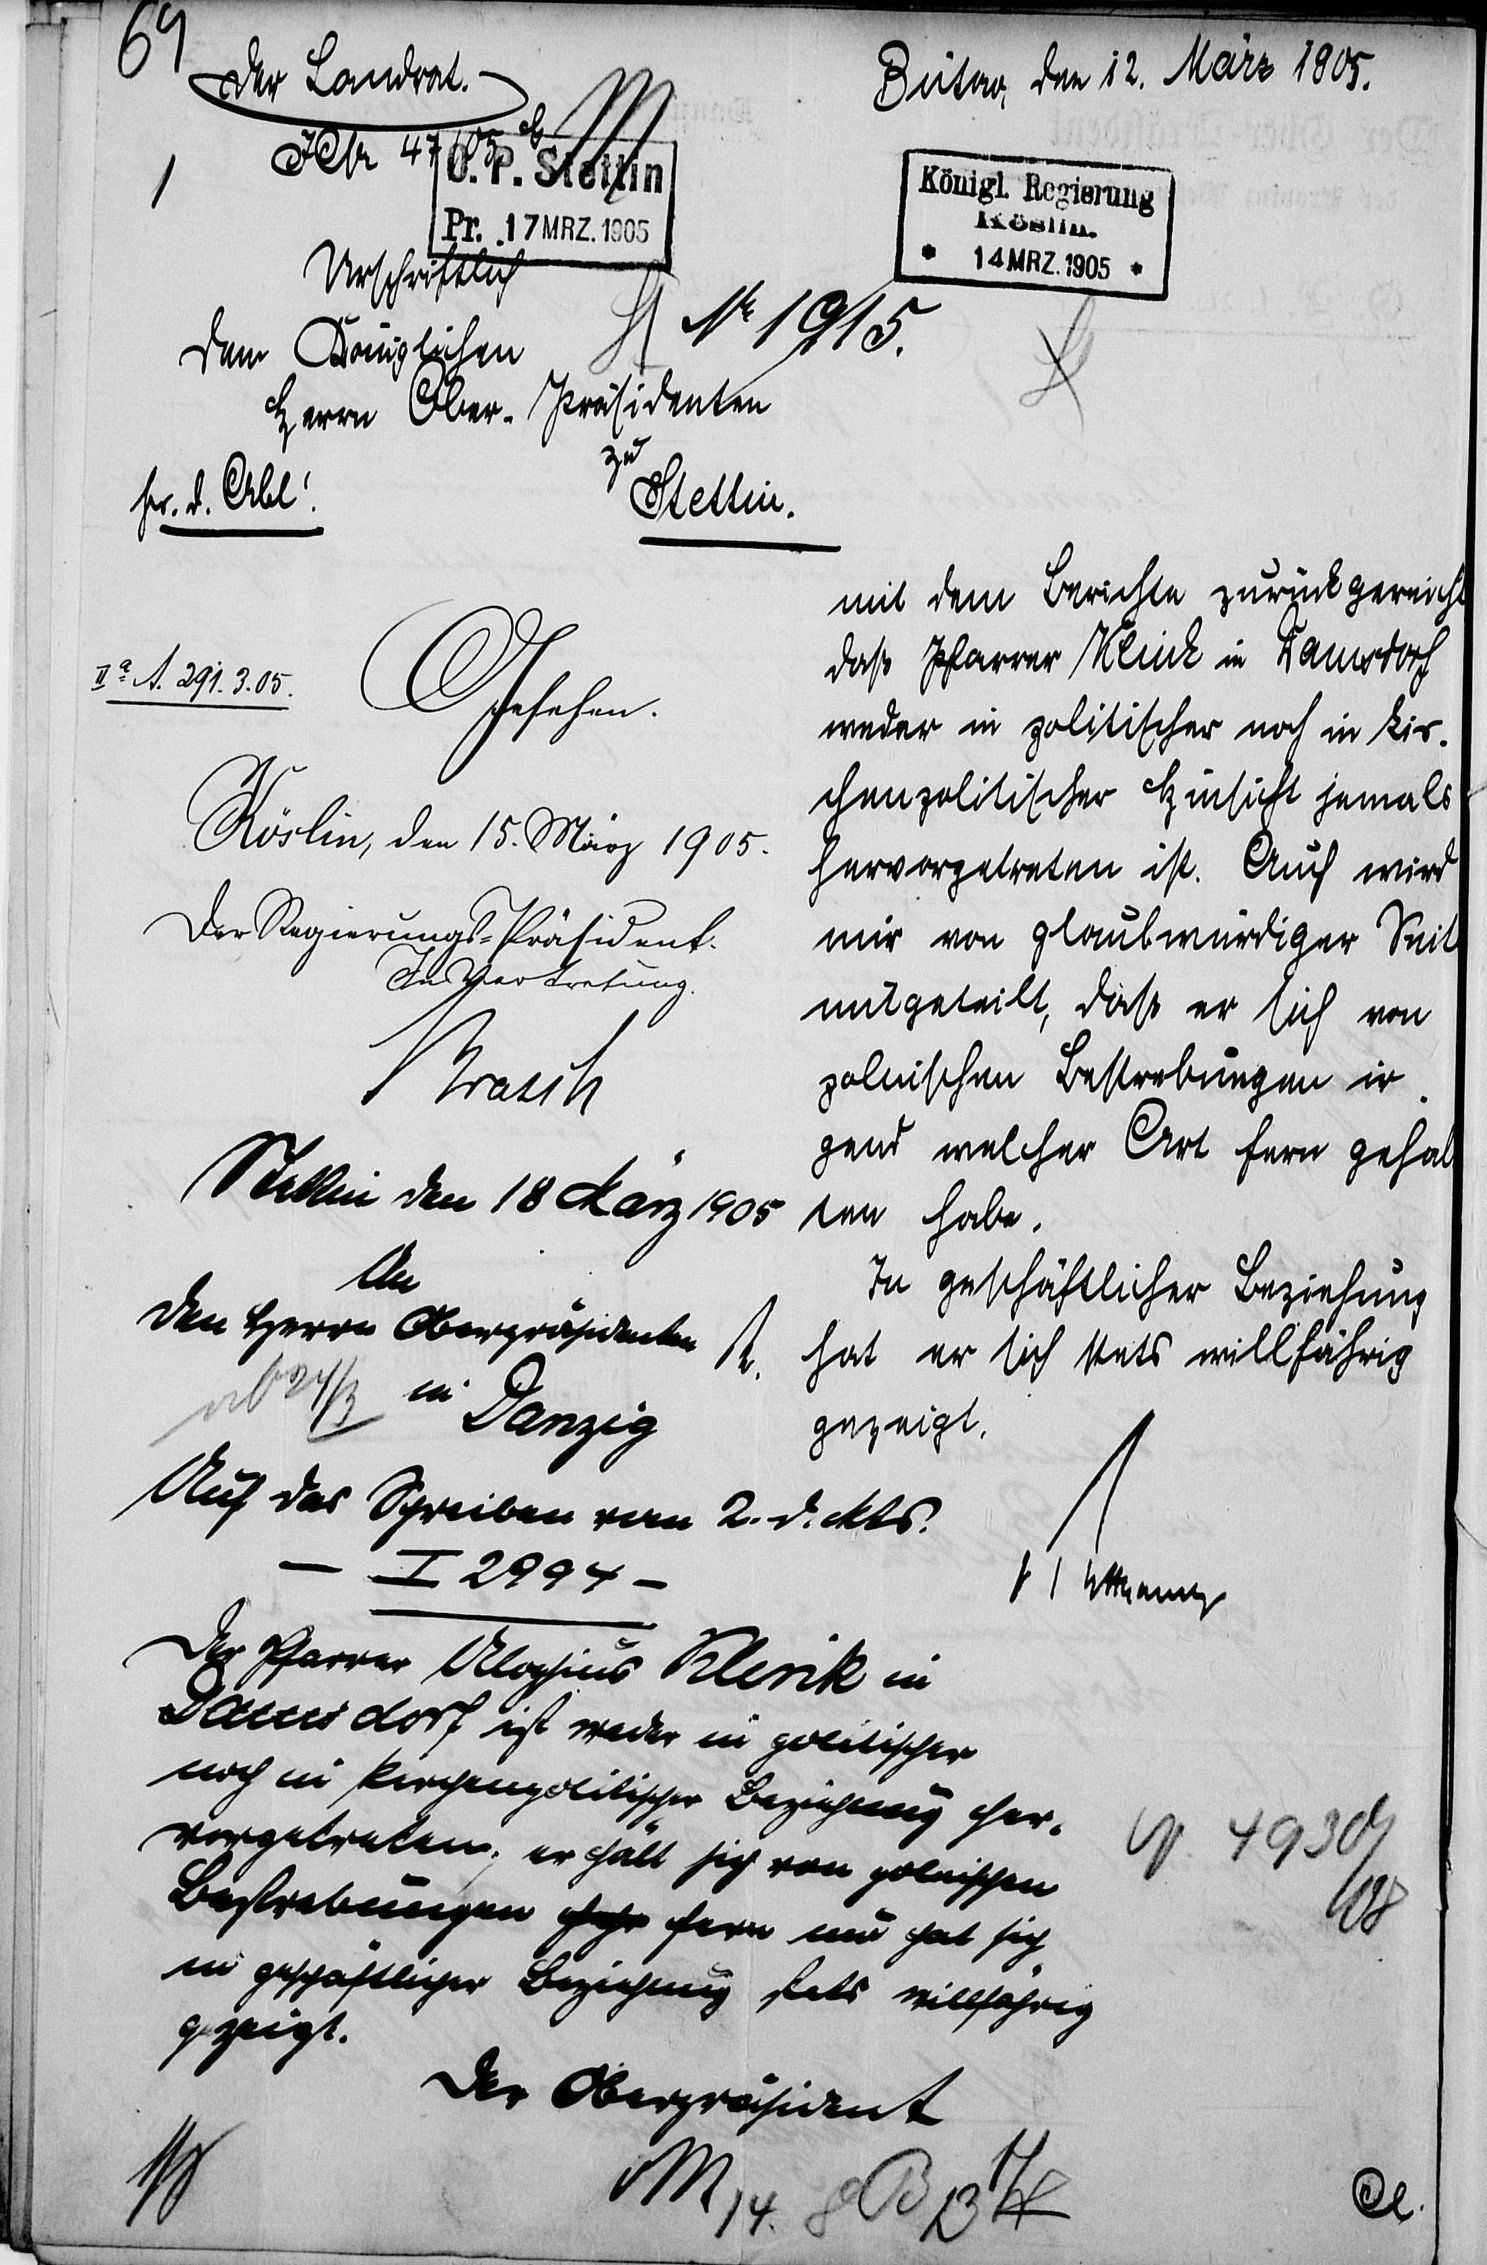 69
Der Landrat.
Bütow, den 12. März 1905.
47/05
1
O. P. Stettin
Pr. 17 MRZ. 1905
Königl. Regierung
Köslin.
* 14 MRZ. 1905 *
Urschriftlich
No 1915.
dem Königlichen
Herrn Ober-Präsidenten
zu
Stettin.
mit dem Berichte zurückgereicht
daß Pfarrer Klink in Damsdorf
weder in politischer noch in kir-
chenpolitischer Hinsicht jemals
hervorgetreten ist. Auch wird
mir von glaubwürdiger Seit
mitgeteilt, daß er sich von
polnischen Bestrebungen ir-
gend welcher Art fern gehal
ten habe.
In geschäftlicher Beziehung
hat er sich stets willfährig
gezeigt.
IIa A. 291.3.05.
Gesehen.
Köslin, den 15. März 1905.
Der Regierungs-Präsident.
In Vertretung.
Stettin den 18 März 1905
An
den Herrn Oberpräsidenten
in Danzig
ab 24/3
Auf das Schreiben vom 2. d. Mts.
– I 2994 –
Der Pfarrer Aloysius Klink in
Damsdorf ist weder in politischer
noch in kirchenpolitischer Beziehung her-
vorgetreten; er hält sich von polnischen
Bestrebungen fern und hat sich
in geschäftlicher Beziehung stets willfährig
gezeigt.
Der Oberpräsident